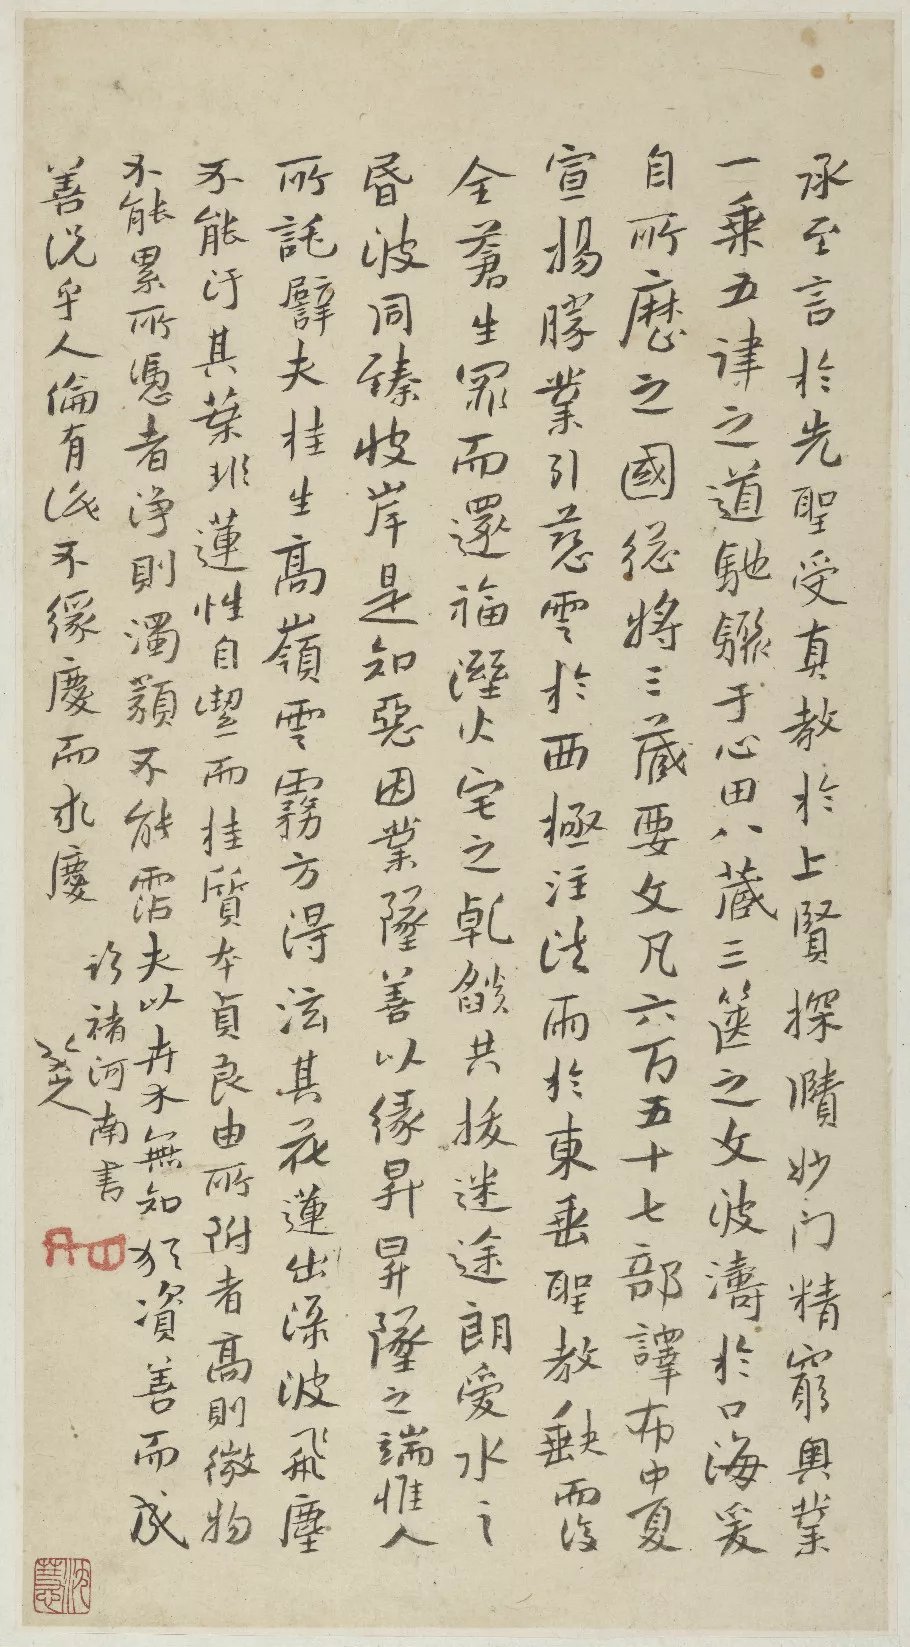 承至言於先聖受真教於上賢探賾妙门精窮奥業
一乘五律之道馳驟于心田八藏三篋之文波濤於口海爰
自所歷之國总將三藏要文凡六万五十七部譯布中夏
宣揚勝業引慈雲於西極注法雨於東垂聖教缺而復
全蒼生罪而還福溼火宅之乾燄共拔迷途朗愛水之
昏波同臻彼岸是知惡因業墜善以緣昇昇墜之端惟人
所託譬夫桂生高嶺雲霧方得泫其花蓮出渌波飛塵
不能汙其葉非蓮性自潔而桂質本貞良由所附者高則微物
不能累所憑者淨則濁類不能霑夫以卉木無知犹資善而成
善况乎人倫有識不緣慶而求慶
臨褚河南書
八大山人
沈慧